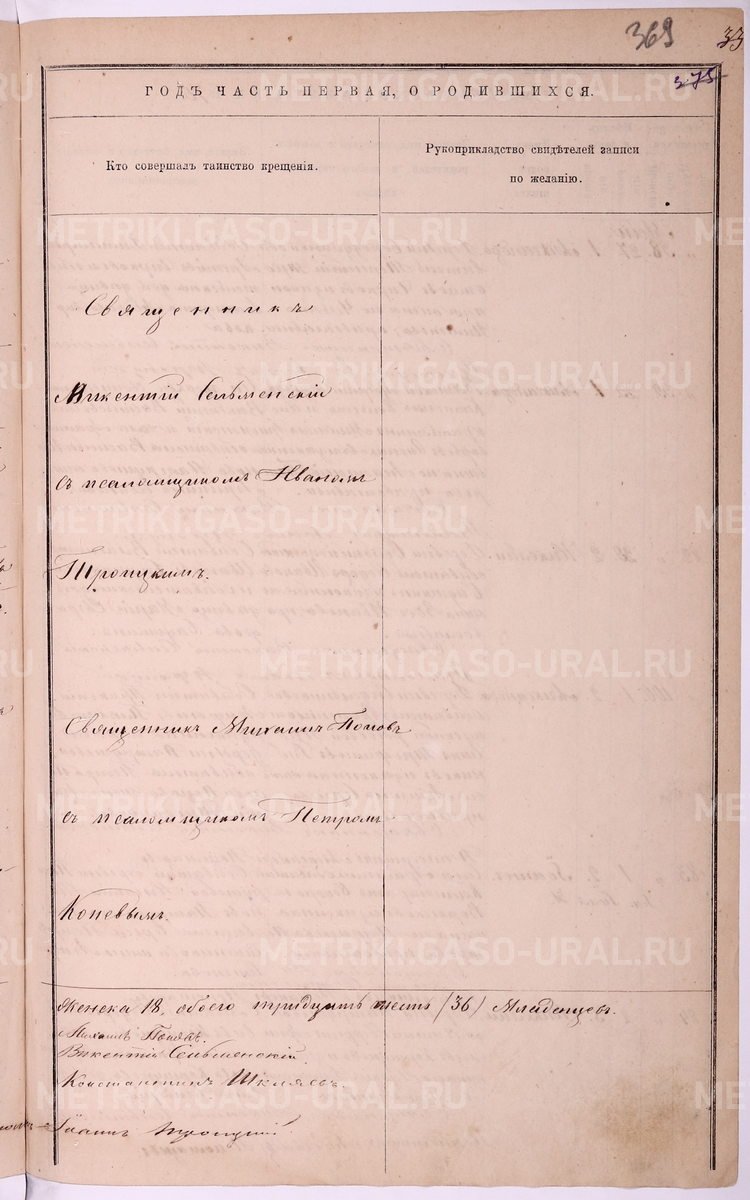 369
33
375
ГОДЪ ЧАСТЬ ПЕРВАЯ, О РОДИВШИХСЯ.
Кто совершалъ таинство крещенія.
Рукоприкладство свидѣтелей записи
по желанію.
Священникъ
Викентій Сельменскій
съ псаломщикомъ Иваномъ
Троицкимъ.
Священникъ Михаилъ Поповъ
съ псаломщикомъ Петромъ
Коневымъ.
Женска 18, обоего тридцать шесть (36) Младенцевъ.
Михаилъ Поповъ.
Викентій Сельменскій.
Константинъ Шкляевъ.
Іоаннъ Троицкій.
METRIKI.GASO-URAL.RU